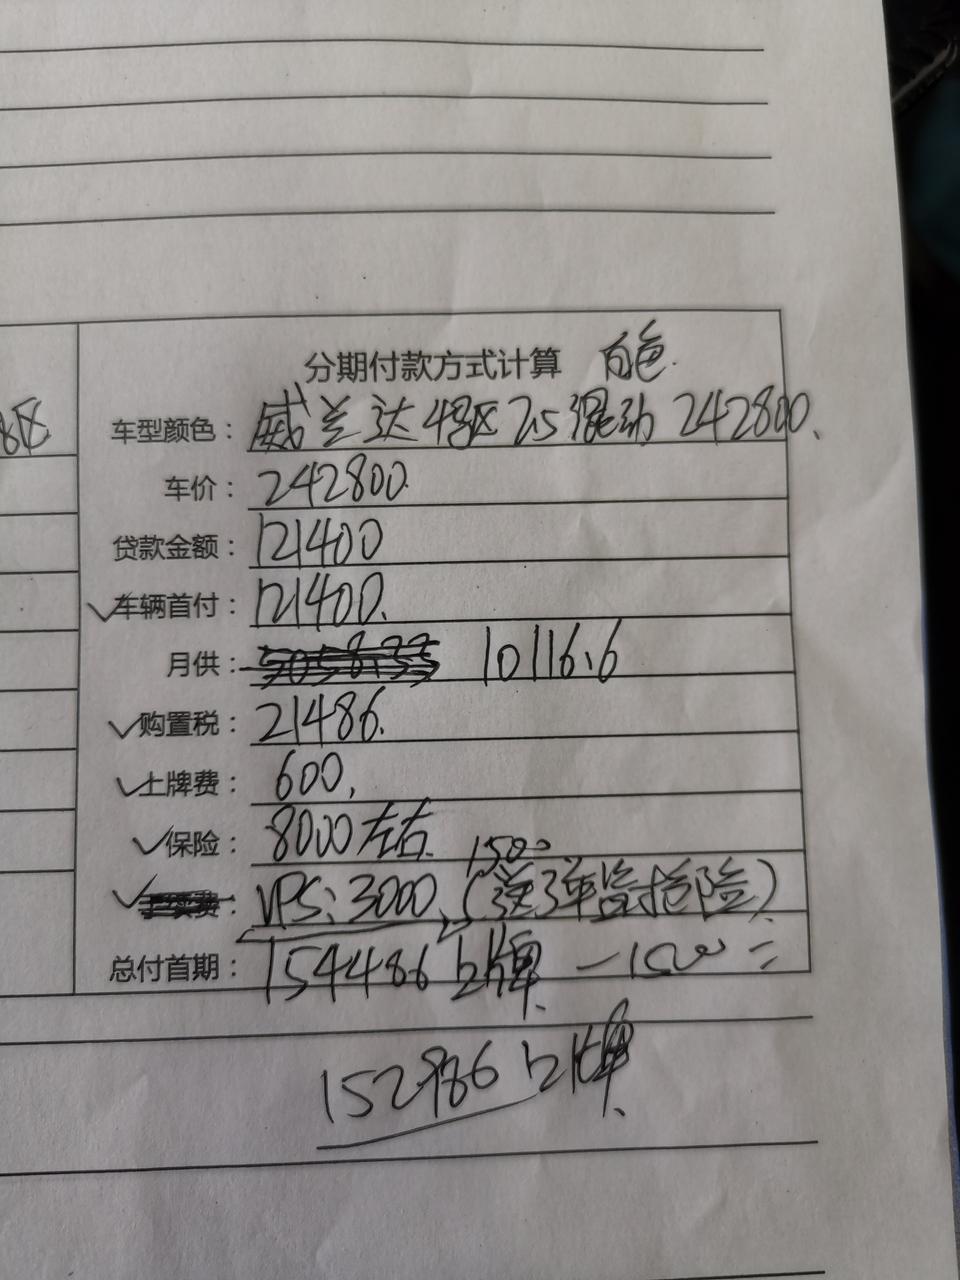 分期付款方式计算 白色.
车型颜色: 威兰达 4驱 2.5混动 242800.
车价: 242800.
贷款金额: 121400
车辆首付: 121400.
月供: 5058.33 10116.6
购置税: 21486.
上牌费: 600.
保险: 8000左右.
1500
手续费: VPS: 3000. (送 盗抢险)
总付首期: 154486 上牌 - 1500 =
152986 上牌.
驱